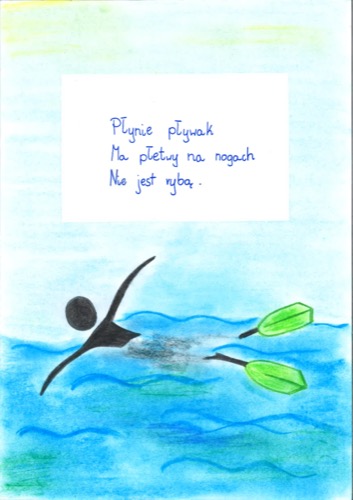 Płynie pływak
Ma płetwy na nogach
Nie jest rybą.